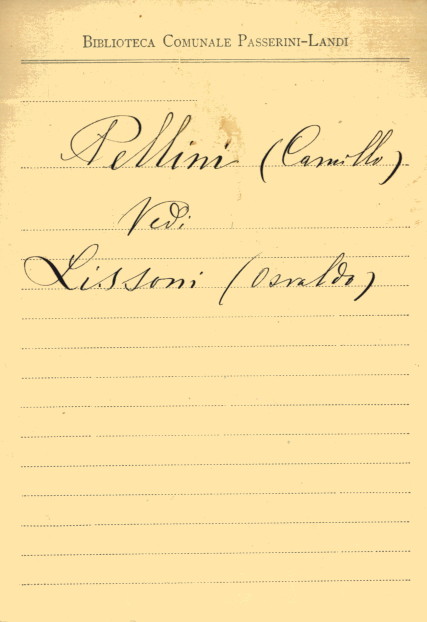 BIBLIOTECA COMUNALE PASSERINI-LANDI
Pellini (Camillo)
Vedi
Lissoni (Osvaldo)